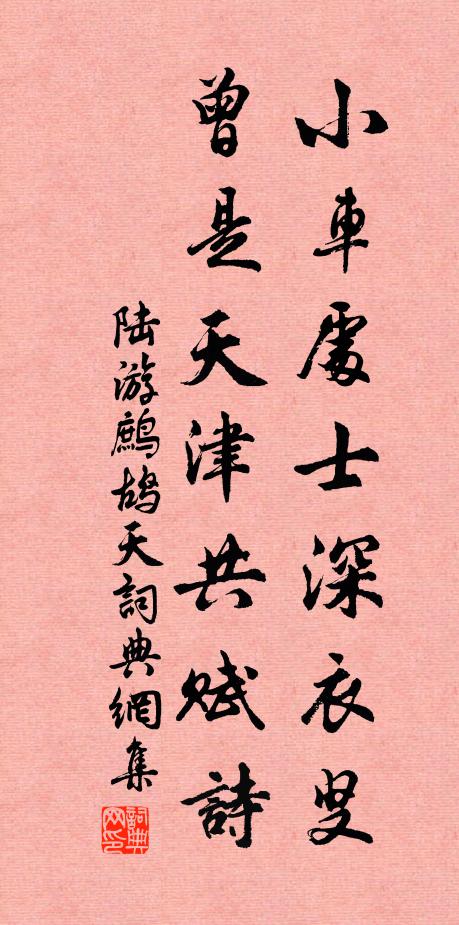 小車處士深衣叟
曾是天津共賦詩
陸游鷓鴣天詞典網集
詞典网印